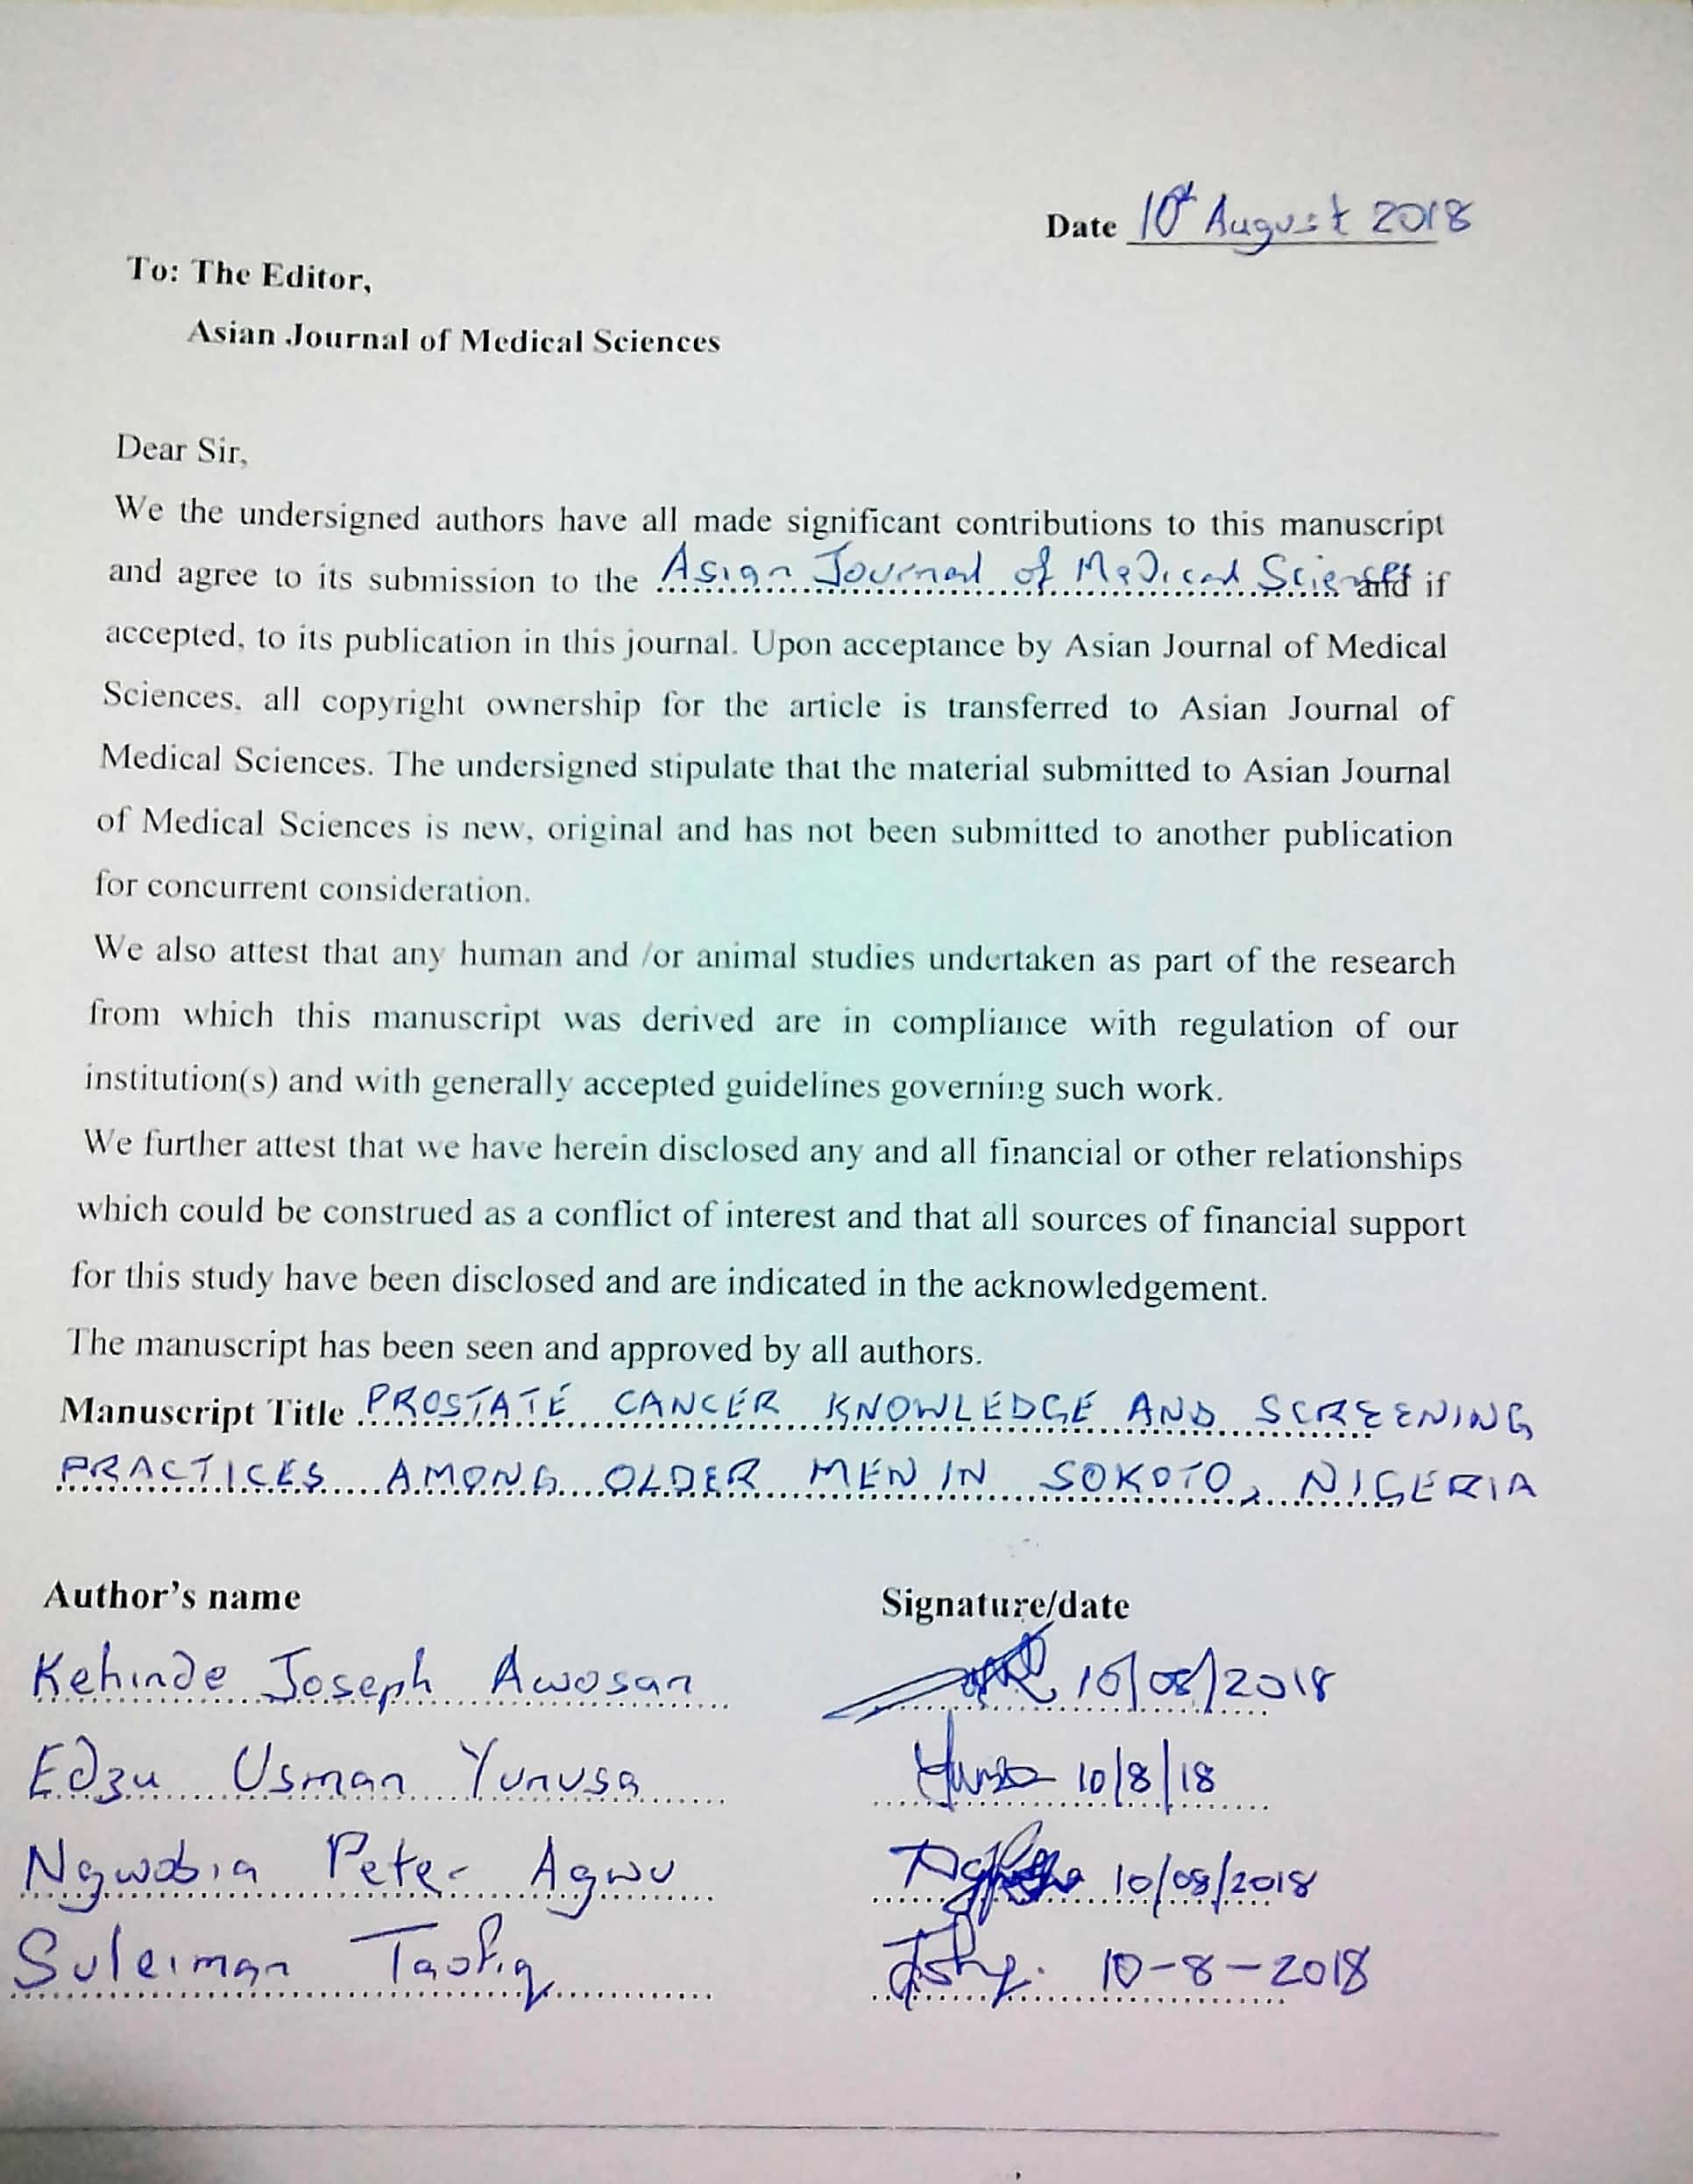 Date 10th August 2018
To: The Editor,
Asian Journal of Medical Sciences
Dear Sir,
We the undersigned authors have all made significant contributions to this manuscript
and agree to its submission to the Asian Journal of Medical Sciences and if
accepted, to its publication in this journal. Upon acceptance by Asian Journal of Medical
Sciences, all copyright ownership for the article is transferred to Asian Journal of
Medical Sciences. The undersigned stipulate that the material submitted to Asian Journal
of Medical Sciences is new, original and has not been submitted to another publication
for concurrent consideration.
We also attest that any human and /or animal studies undertaken as part of the research
from which this manuscript was derived are in compliance with regulation of our
institution(s) and with generally accepted guidelines governing such work.
We further attest that we have herein disclosed any and all financial or other relationships
which could be construed as a conflict of interest and that all sources of financial support
for this study have been disclosed and are indicated in the acknowledgement.
The manuscript has been seen and approved by all authors.
Manuscript Title PROSTATE CANCER KNOWLEDGE AND SCREENING
PRACTICES AMONG OLDER MEN IN SOKOTO, NIGERIA
Author's name Signature/date
Kehinde Joseph Awosan 10/08/2018
Edzu Usman Yunusa 10/8/18
Ngwobia Peter Agwu 10/08/2018
Suleiman Taofiq 10-8-2018